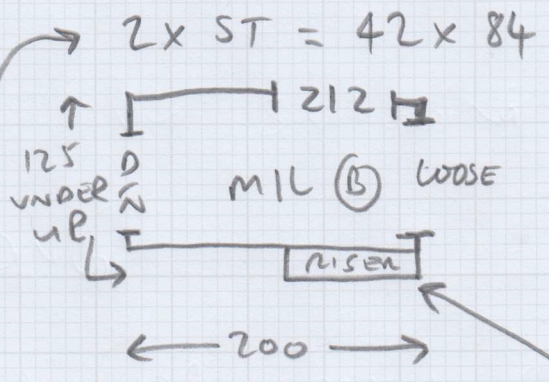 2 x ST = 42 x 84
212
125
UNDER
UP
DN
MIL B LOOSE
RISER
200